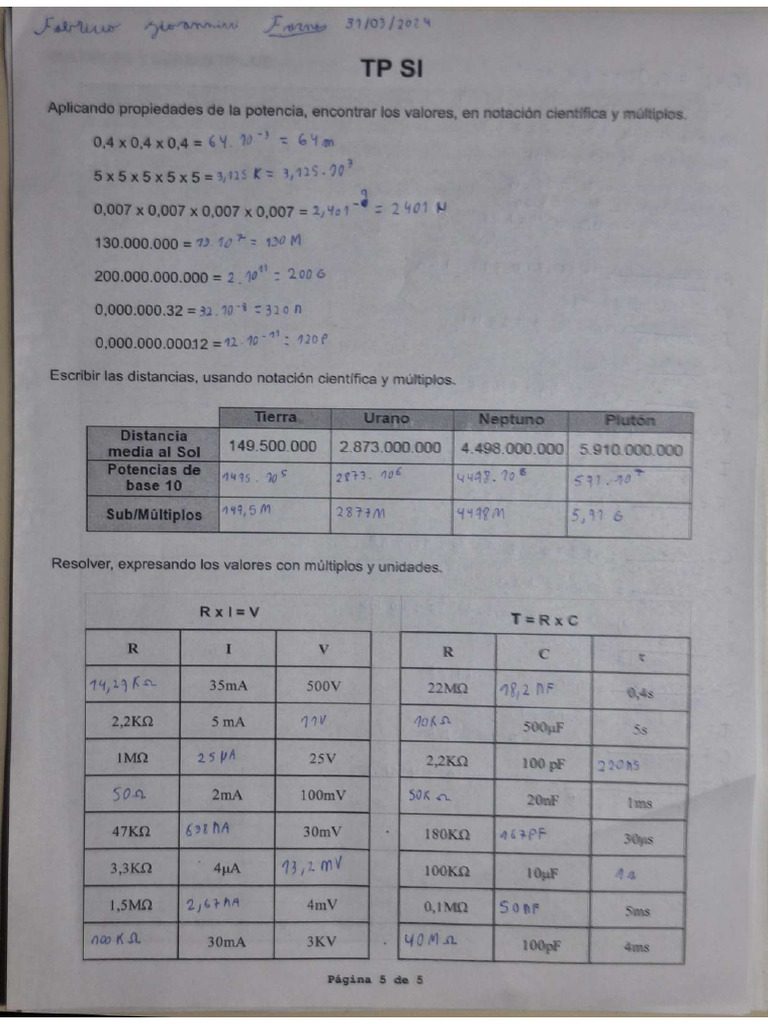 Fabrizio Giovannini Fornes 31/03/2024
TP SI
Aplicando propiedades de la potencia, encontrar los valores, en notación científica y múltiplos.
0,4 x 0,4 x 0,4 = 64.10⁻³ = 64m
5 x 5 x 5 x 5 x 5 = 3,125 K = 3,125.10³
0,007 x 0,007 x 0,007 x 0,007 = 2,401⁻⁹ = 2401 N
130.000.000 = 13.10⁷ = 130 M
200.000.000.000 = 2.10¹¹ = 200 G
0,000.000.32 = 32.10⁻⁸ = 320 n
0,000.000.000.12 = 12.10⁻¹¹ = 120 P
Escribir las distancias, usando notación científica y múltiplos.
Tierra Urano Neptuno Plutón
Distancia media al Sol 149.500.000 2.873.000.000 4.498.000.000 5.910.000.000
Potencias de base 10 1495.10⁵ 2873.10⁶ 4498.10⁶ 591.10⁷
Sub/Múltiplos 149,5 M 2873M 4498M 5,91 G
Resolver, expresando los valores con múltiplos y unidades.
R x I = V
R I V
14,29 KΩ 35mA 500V
2,2KΩ 5 mA 11V
1MΩ 25 µA 25V
50Ω 2mA 100mV
47KΩ 638 nA 30mV
3,3KΩ 4µA 13,2 mV
1,5MΩ 2,67 nA 4mV
100 KΩ 30mA 3KV
T = R x C
R C τ
22MΩ 18,2 nF 0,4s
10KΩ 500µF 5s
2,2KΩ 100 pF 220ns
50K Ω 20nF 1ms
180KΩ 167PF 30µs
100KΩ 10µF 1s
0,1MΩ 50nF 5ms
40MΩ 100pF 4ms
Página 5 de 5